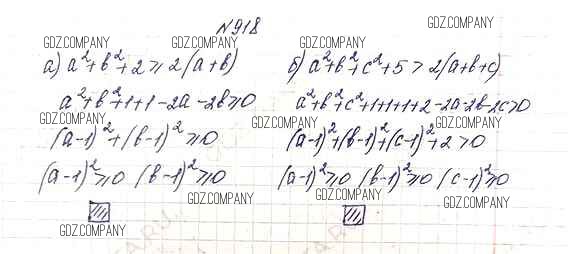 №918
GDZ.COMPANY
GDZ.COMPANY GDZ.COMPANY GDZ.COMPANY
а) a²+b²+2 ⩾ 2(a+b)
б) a²+b²+c²+5 > 2(a+b+c)
a²+b²+1+1-2a-2b⩾0
a²+b²+c²+1+1+1+2-2a-2b-2c>0
GDZ.COMPANY GDZ.COMPANY GDZ.COMPANY
(a-1)²+(b-1)²⩾0
(a-1)²+(b-1)²+(c-1)²+2>0
(a-1)²⩾0 (b-1)²⩾0
(a-1)²⩾0 (b-1)²⩾0 (c-1)²⩾0
GDZ.COMPANY GDZ.COMPANY GDZ.COMPANY
GDZ.COMPANY